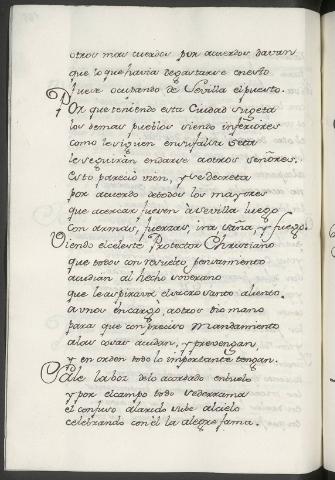 otros mas cuerdos por acuerdos davan
que lo que havia de gastarse en esto
fuese ocupando de Sevilla el puesto.
Por que teniendo esta Ciudad sugeta
los demas pueblos siendo inferiores
como le siguen en su falsa seta
le seguiràn en darse a otros señores.
Esto pareciò vien, y se decreta
por acuerdo de todos los mayores
que a cercar fuesen à Sevilla luego
con armas, fuerzas, ira, saña, y fuego.
Viendo el celeste Protector Christiano
que todos con resuelto pensamiento
acudian al hecho soverano
que les aspirava el sacro santo aliento.
a unos encargò, a otros dio mano
para que con preciso mandamiento
a las cosas acudan, y prevengan,
y en orden todo lo importante tengan.
Sale la boz de lo acordado en buelo
y por el campo todo se derrama
el confuso alarido sube al cielo
celebrando con èl la alegre fama.